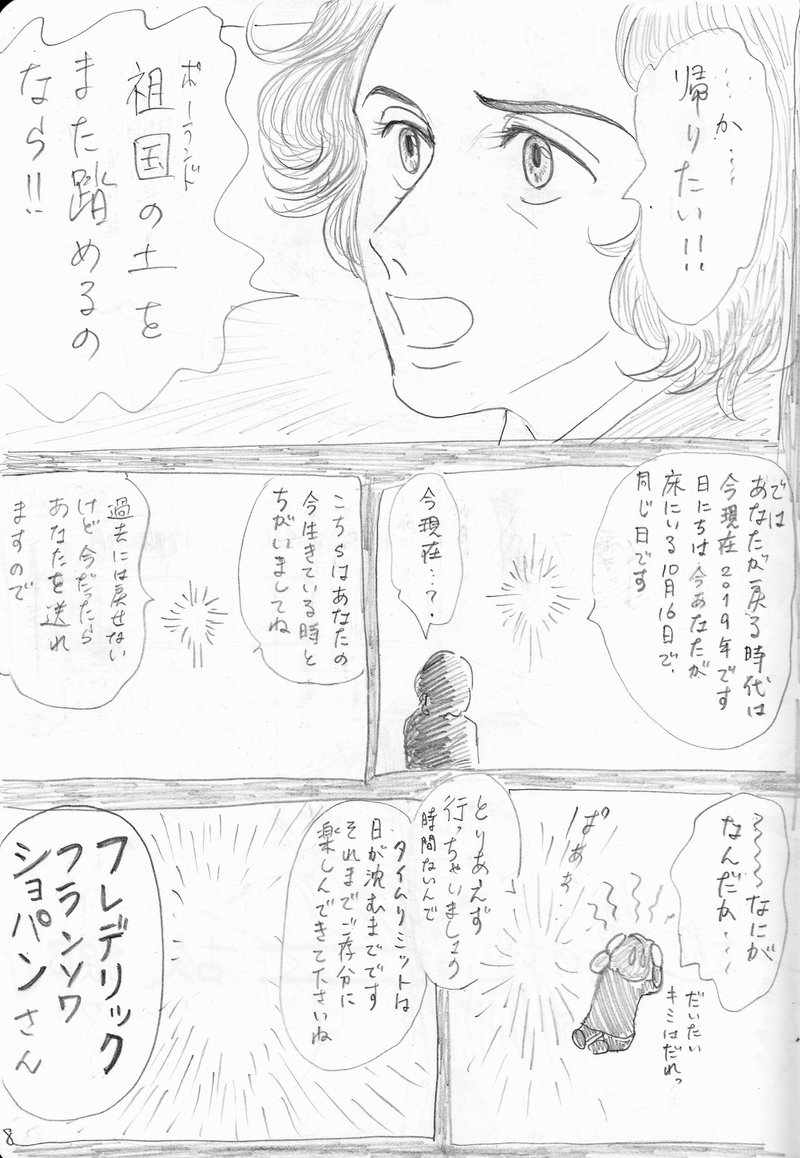 …か…
帰りたい!!
ポーランド
祖国の土を
また踏めるの
なら!!
では
あなたが戻る時代は
今現在2019年です
日にちは今あなたが
床にいる10月16日で、
同じ日です
今現在…?
こちらはあなたの
今生きている時と
ちがいましてね
過去には戻せない
けど今だったら
あなたを送れ
ますので
~~~なにが
なんだか…
ぱあぁ
だいたい
キミはだれっ
とりあえず
行っちゃいましょう
時間ないんで
タイムリミットは
日が沈むまでです
それまでご存分に
楽しんできて下さいね
フレデリック
フランソワ
ショパンさん
8